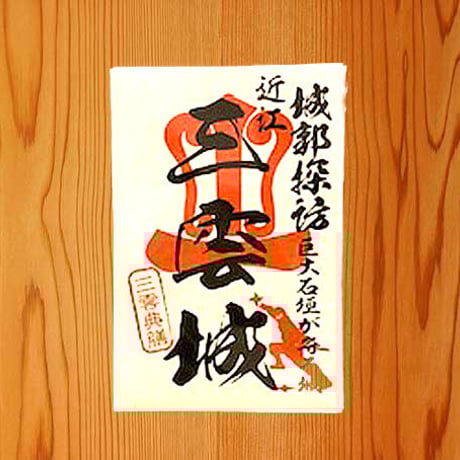 城郭探訪
巨大石垣が存る城
近江
三雲城
三雲典膳